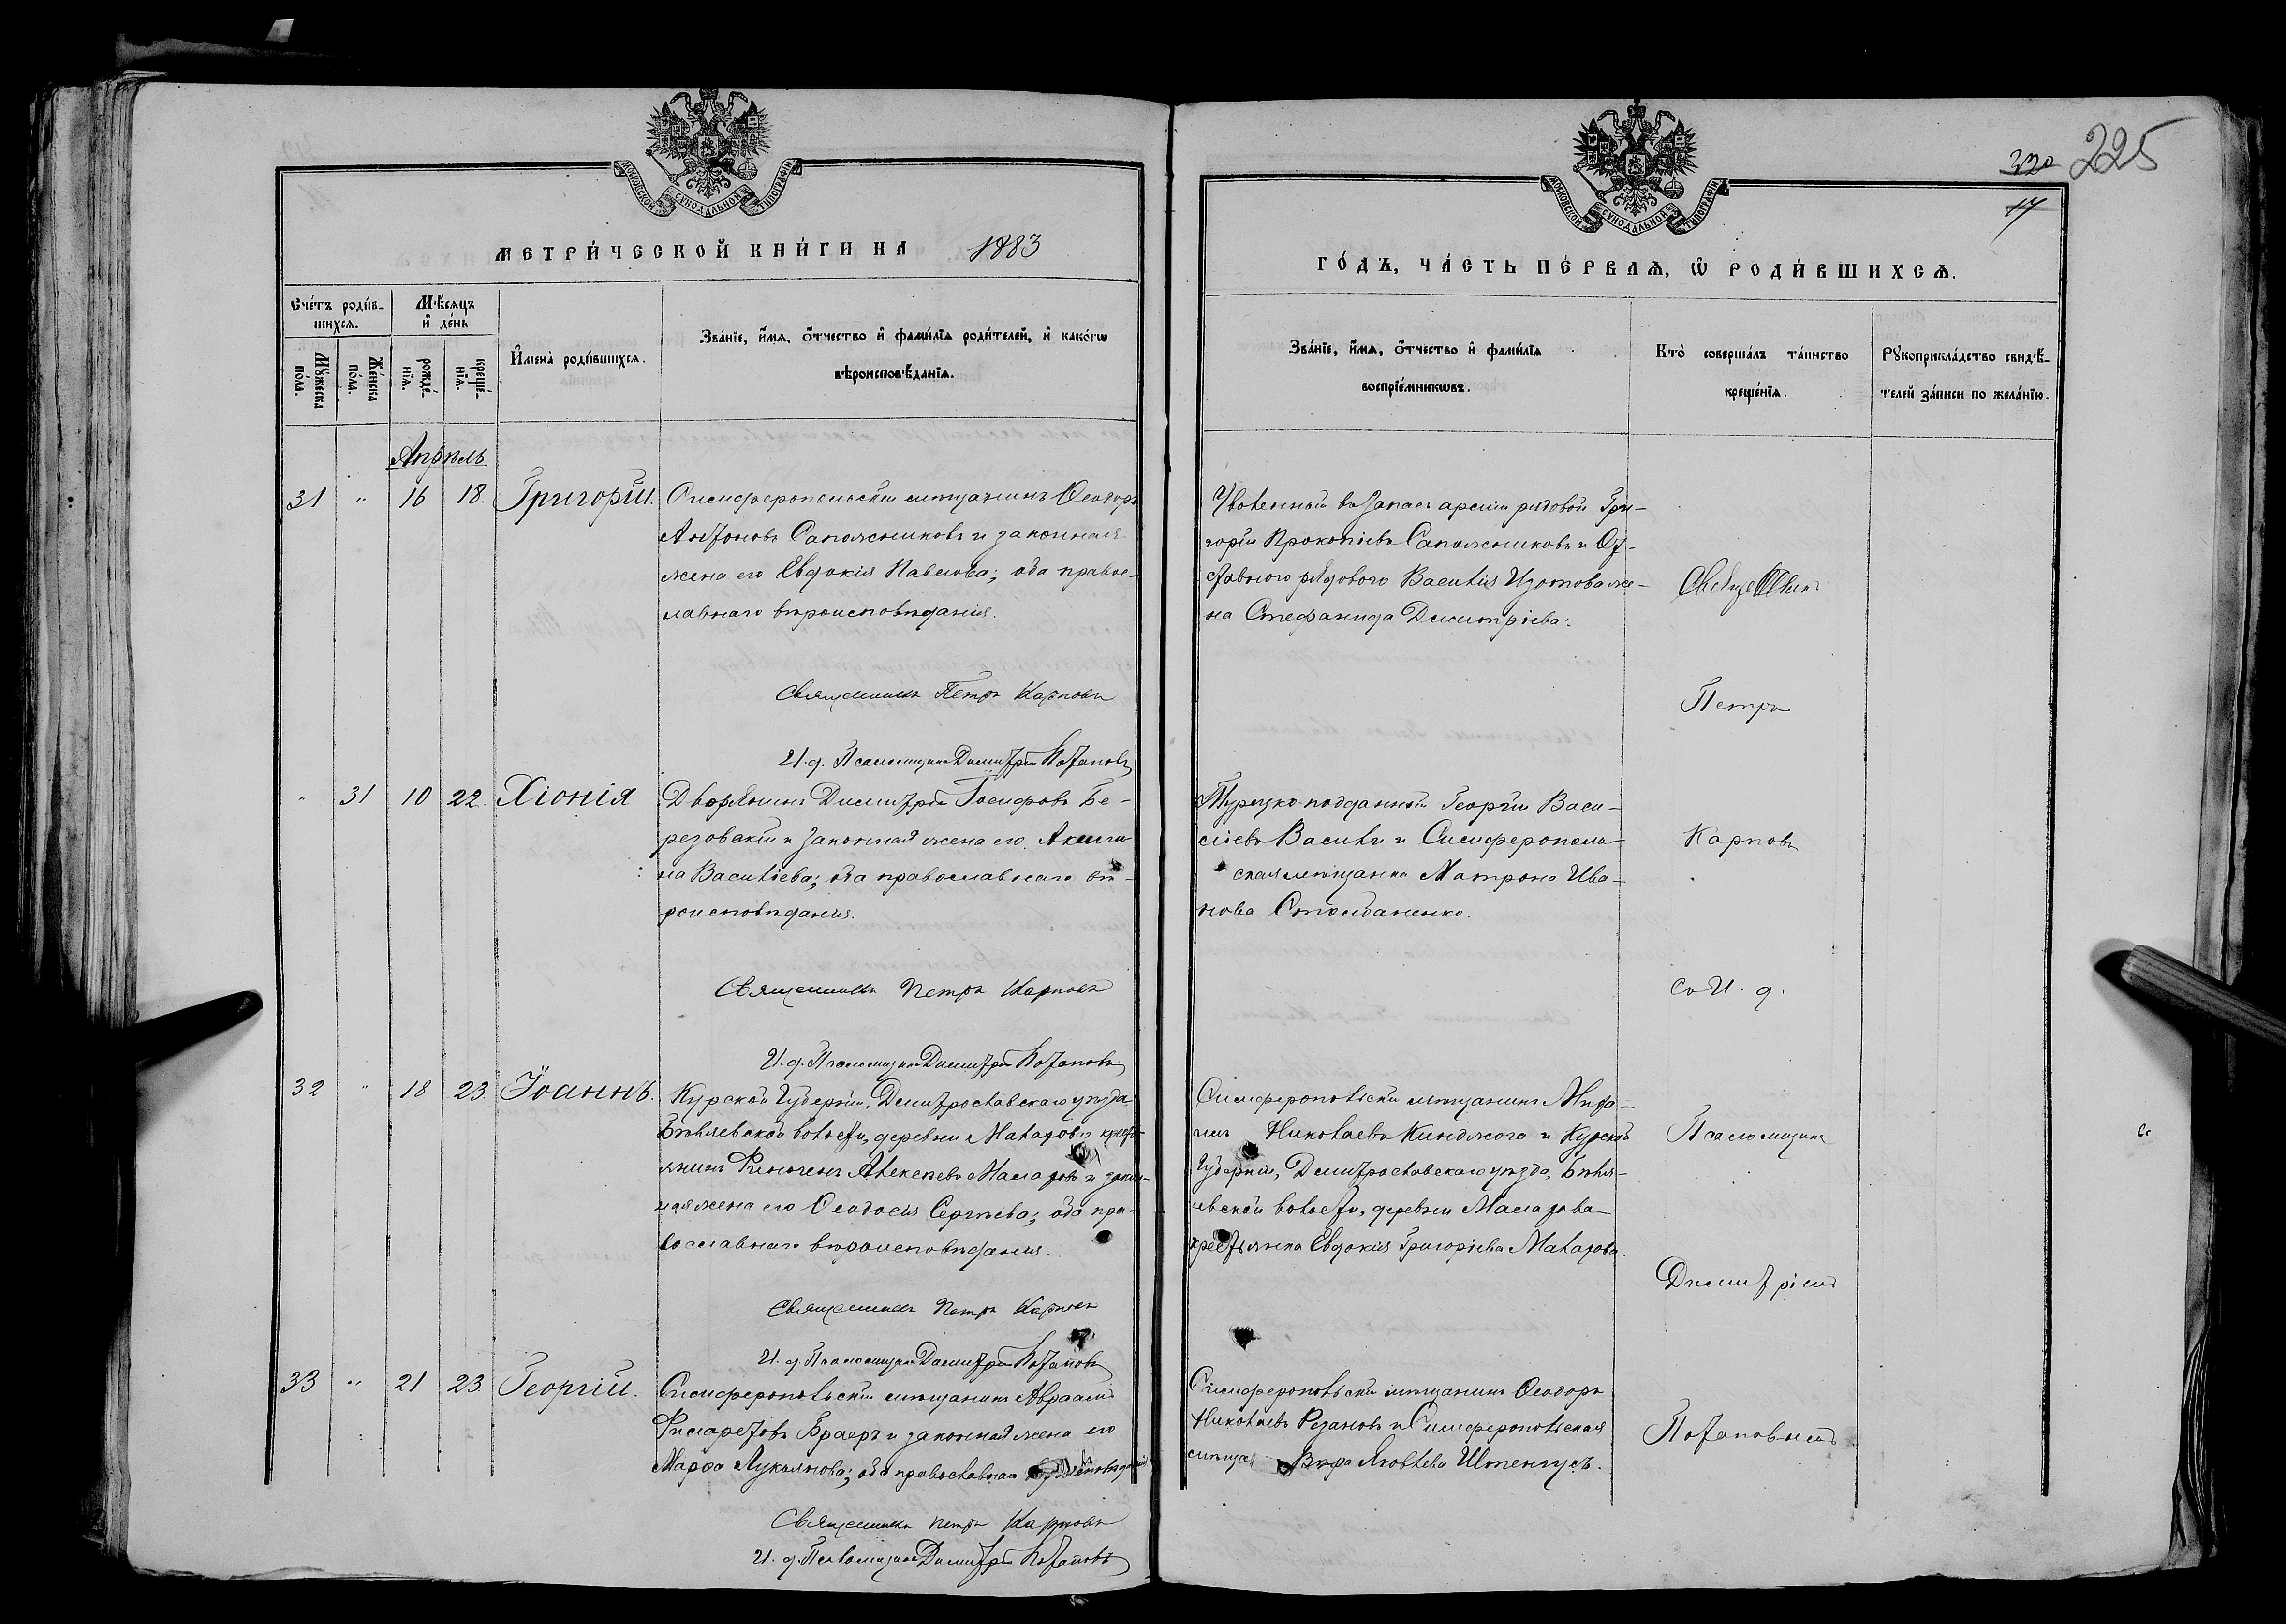 МОСКОВСКОЙ СУНОДАЛЬНОЙ ТИПОГРАФІИ
МЕТРИ́ЧЕСКОЙ КНИ́ГИ НА 1883
Сче́тъ роди́в-
шихсѧ.
Мѣ́сѧцъ
и҆ де́нь
Мꙋ́жеска
по́ла.
Же́нска
по́ла.
рожде́-
нїѧ.
креще́-
нїѧ.
И҆мена̀ роди́вшихсѧ.
Зва́нїе, и҆́мѧ, ѻ҆́тчество и҆ фами́лїѧ роди́телей, и҆ како́гѡ
вѣроисповѣ́данїѧ.
Апрѣль
31 " 16 18. Григорій. Симферопольскій мѣщанинъ Ѳеодоръ
Антоновъ Сапожниковъ и законная
жена его Евдокія Павлова; оба правос-
лавнаго вѣроисповѣданія.
Священникъ Петръ Карповъ
И. д. Псаломщика Димитрій Потаповъ
" 31 10 22. Хіонія Дворянинъ Димитрій Іосифовъ Бе-
резовскій и законная жена его Акили-
на Василіева; оба православнаго вѣ-
роисповѣданія.
Священникъ Петръ Карповъ
И. д. Псаломщика Димитрій Потаповъ
32 " 18 23. Іоаннъ. Курской Губерніи, Дмитровскаго уѣзда,
волости, деревни крест-
янинъ Алексѣевъ и закон-
ная жена его Ѳеодосія Сергѣева; оба пра-
вославнаго вѣроисповѣданія.
Священникъ Петръ Карповъ
И. д. Псаломщика Димитрій Потаповъ
33 " 21 23. Георгій. Симферопольскій мѣщанинъ Авраамъ
Филаретовъ Браеръ и законная жена его
Марѳа Лукьянова; оба православнаго вѣроисповѣданія
Священникъ Петръ Карповъ
И. д. Псаломщика Димитрій Потаповъ
МОСКОВСКОЙ СУНОДАЛЬНОЙ ТИПОГРАФІИ
320 225
17
ГО́ДЪ, ЧА́СТЬ ПЕ́РВАѦ, Ѡ҆ РОДИ́ВШИХСѦ.
Зва́нїе, и҆́мѧ, ѻ҆́тчество и҆ фами́лїѧ
воспрїе́мникѡвъ.
Кто̀ соверша́лъ та́инство
креще́нїѧ.
Рꙋкоприкла́дство свидѣ́-
телей за́писи по жела́нїю.
Уволенный въ запасъ арміи рядовой Гри-
горій Прокопіевъ Сапожниковъ и От-
ставного рядового Василія Изотова же-
на Стефанида Димитріева.
Турецко-подданный Георгій Васи-
ліевъ и Симферополь-
ская мѣщанка Матрона Ива-
нова
Симферопольскій мѣщанинъ Миха-
илъ Николаевъ и Курской
Губерніи, Дмитровскаго уѣзда,
волости, деревни
крестьянка Евдокія Григоріева
Симферопольскій мѣщанинъ Ѳеодоръ
Николаевъ Резановъ и Симферопольская
Вѣра Яковлева Штенгусъ.
Священникъ
Петръ
Карповъ
съ И. д.
Псаломщика
Димитріемъ
Потаповымъ